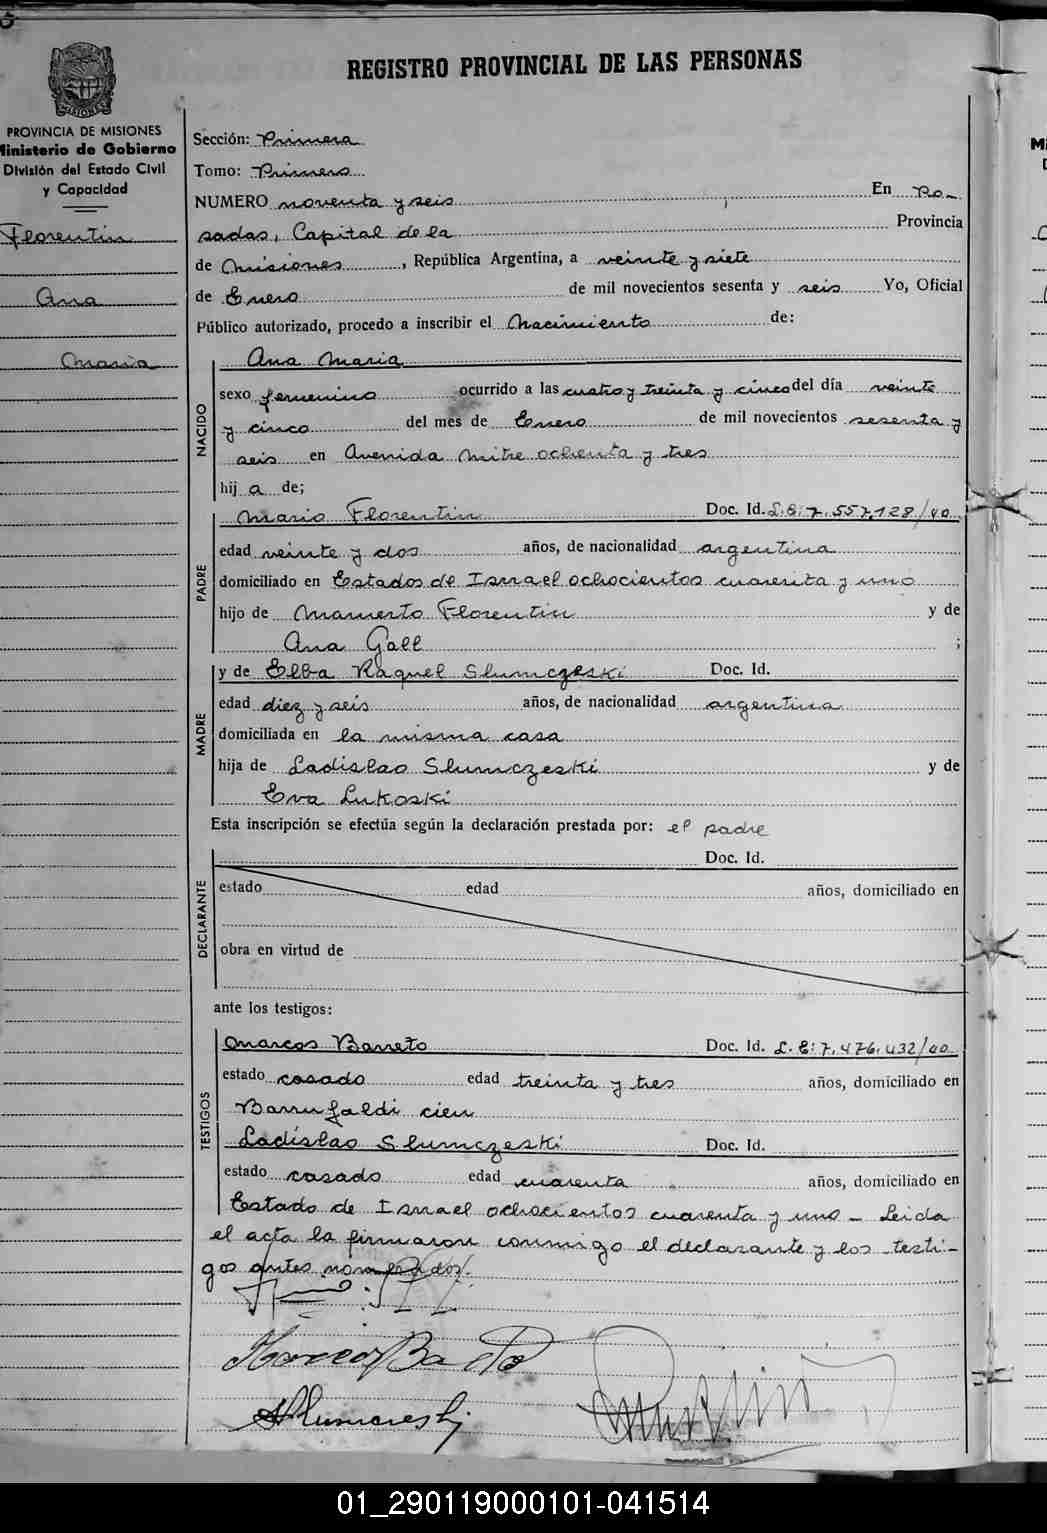 REGISTRO PROVINCIAL DE LAS PERSONAS
MISIONES
PROVINCIA DE MISIONES
Ministerio de Gobierno
División del Estado Civil
y Capacidad
Florentin
Ana
Maria
Sección: Primera
Tomo: Primero
NUMERO noventa y seis En Po-
sadas, Capital de la Provincia
de Misiones, República Argentina, a veinte y siete
de Enero de mil novecientos sesenta y seis Yo, Oficial
Público autorizado, procedo a inscribir el Nacimiento de:
NACIDO
Ana Maria
sexo femenino ocurrido a las cuatro y treinta y cinco del día veinte
y cinco del mes de Enero de mil novecientos sesenta y
seis en Avenida Mitre ochenta y tres
hij a de;
PADRE
Mario Florentin Doc. Id. L.E: 7.557.128/40
edad veinte y dos años, de nacionalidad argentina
domiciliado en Estados de Israel ochocientos cuarenta y uno
hijo de Mamerto Florentin y de
Ana Gall ;
MADRE
y de Elba Raquel Slumczeski Doc. Id.
edad diez y seis años, de nacionalidad argentina
domiciliada en la misma casa
hija de Ladislao Slumczeski y de
Eva Lukoski
Esta inscripción se efectúa según la declaración prestada por: el padre
DECLARANTE
Doc. Id.
estado edad años, domiciliado en
obra en virtud de
ante los testigos:
TESTIGOS
Marcos Barreto Doc. Id. L.E: 7.476.432/40
estado casado edad treinta y tres años, domiciliado en
Barrufaldi cien
Ladislao Slumczeski Doc. Id.
estado casado edad cuarenta años, domiciliado en
Estado de Israel ochocientos cuarenta y uno - Leida
el acta la firmaron conmigo el declarante y los testi-
gos antes nombrados.
01_290119000101-041514